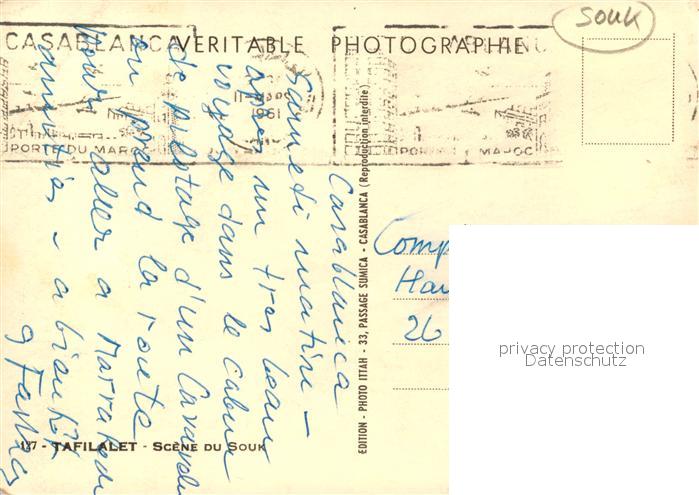 Souk
CASABLANCA
VERITABLE PHOTOGRAPHIE
1961
PORTE DU MAROC
PORTE DU MAROC
Casablanca
Samedi matin -
après un très beau
voyage dans le cabine
de pilotage d'un Caravelle
on prend la route
pour aller a Marrakech
amitiés - a bientôt
EDITION - PHOTO ITTAH - 33, PASSAGE SUMICA - CASABLANCA (Reproduction interdite)
Comp
Hau
26
privacy protection
Datenschutz
137 - TAFILALET - SCÈNE DU SOUK